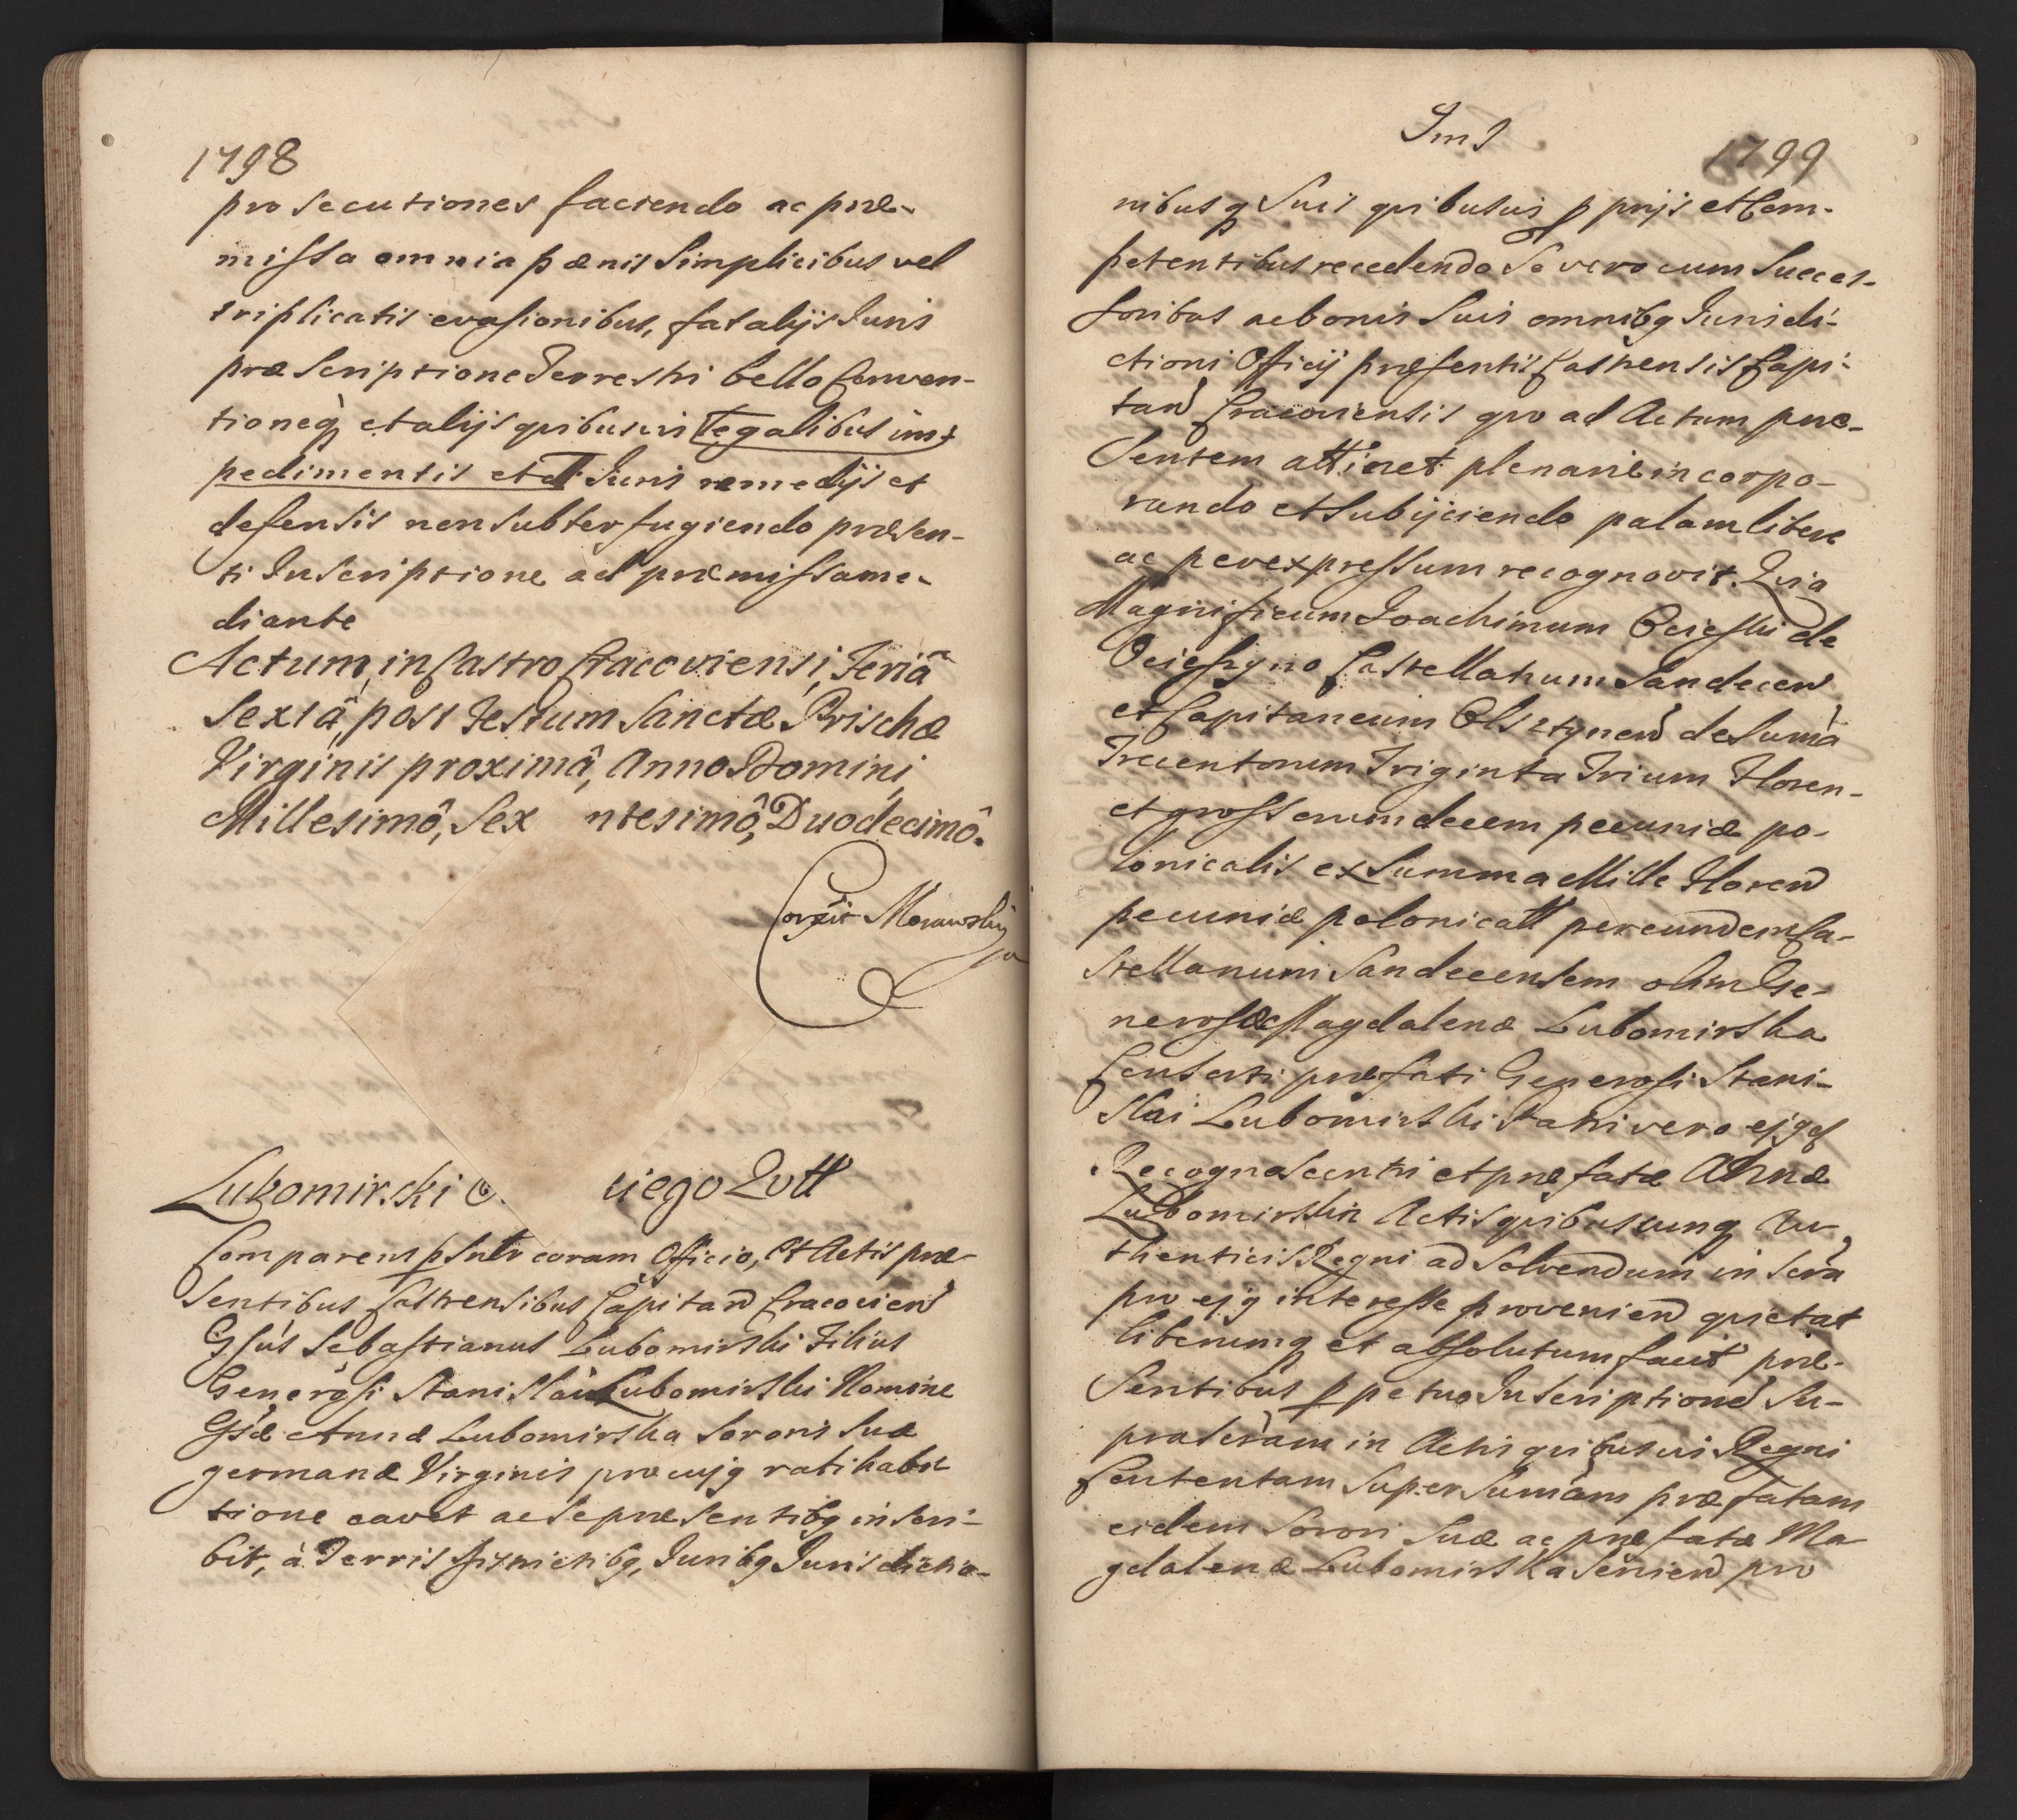 1798
prosecutiones faciendo ac præ-
missa omnia pænis Simplicibus vel
triplicatis evasionibus, fatalijs Juris
præscriptione Terrestri bello Conven-
tioneq et alijs quibusvis legalibus im-
pedimentis et Juris remedijs et
defensis non subterfugiendo præsen-
ti Inscriptione ad præmissa me-
diante
Actum, in Castro Cracoviensi, Feriâ
Sextâ, post Festum Sanctæ Prischæ
Virginis proximâ, Anno Domini,
Millesimô, Sex ntesimô, Duodecimô.
Corrxit Morawskij
Lubomirski O. ciego Qutt
Comparens psnlr coram Officio, et Actis præ-
sentibus Castrensibus Capitan Cracovien
Gsus Sebastianus Lubomirski Filius
Generosi Stanislai Lubomirski Nomine
Gsæ Annæ Lubomirska Sororis Suæ
germanæ Virginis pro cujq ratihabi
tione cavet ac se præsentibq inscri-
bit, à Terris districtibq, Juribq Jurisdictio-
Im I
1799
nibusq Suis quibusvis pprijs et Com-
petentibus recedendo Se vero cum Succes-
soribus ac bonis Suis omnibq Jurisdi-
ctioni Officij præsentis Castrensis Capi-
tan Cracoviensis quo ad Actum præ-
sentem attinet plenarie incorpo-
rando et Subijciendo palam libere
ac per expressum recognovit. Quia
Magnificum Joachimum Ocieski de
Ociessyno Castellanum Sandecen
et Capitaneum Olsztynen de Suma
Trecentorum Triginta Trium Floren-
et grossorum decem pecuniæ po-
lonicalis ex Summa Mille Floren
pecuniæ polonicall per eundem Ca-
stellanum Sandecensem olim Ge-
nerosæ Magdalenæ Lubomirska
Consorti præfati Generosi Stani-
slai Lubomirski Patri vero ejqd
Recognoscentri et præfatæ Annæ
Lubomirskin Actis quibuscunq Au-
thenticis Regni ad Solvendum inscra
pro ejq interesse provenien quietat
liberumq et absolutum facit præ-
sentibus ppetuo Inscriptione Su-
prascram in Actis quibusvis Regni
Contentam Super Sumam præfatam
eidem Sorori Suæ ac præfatæ Ma-
gdalenæ Lubomirska Servien pro